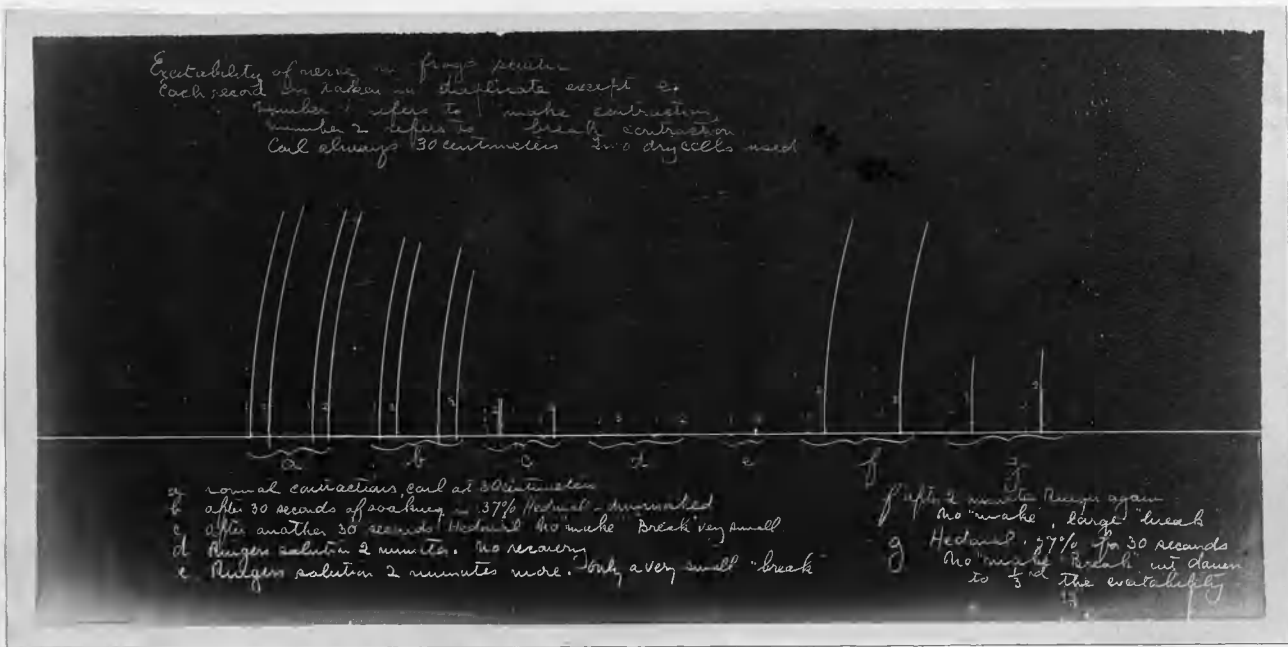 Excitability of nerve in frogs sciatic
Each record is taken in duplicate except e.
Number 1 refers to make contraction
number 2 refers to break contraction
Coil always 30 centimeters Two dry cells used
1 2 1 2 1 2 1 2
a b c d e f g
a normal contractions, coil at 30 centimeters
b after 30 seconds of soaking in .37% Hedonal
c after another 30 seconds Hedonal No make Break very small
d Ringers solution 2 minutes. No recovery
e Ringers solution 2 minutes more. only a very small "break"
f after 2 minutes Ringer again
No "make", large "break"
g Hedonal .37% for 30 seconds
No "make" "Break" cut down
to 1/3rd the excitability